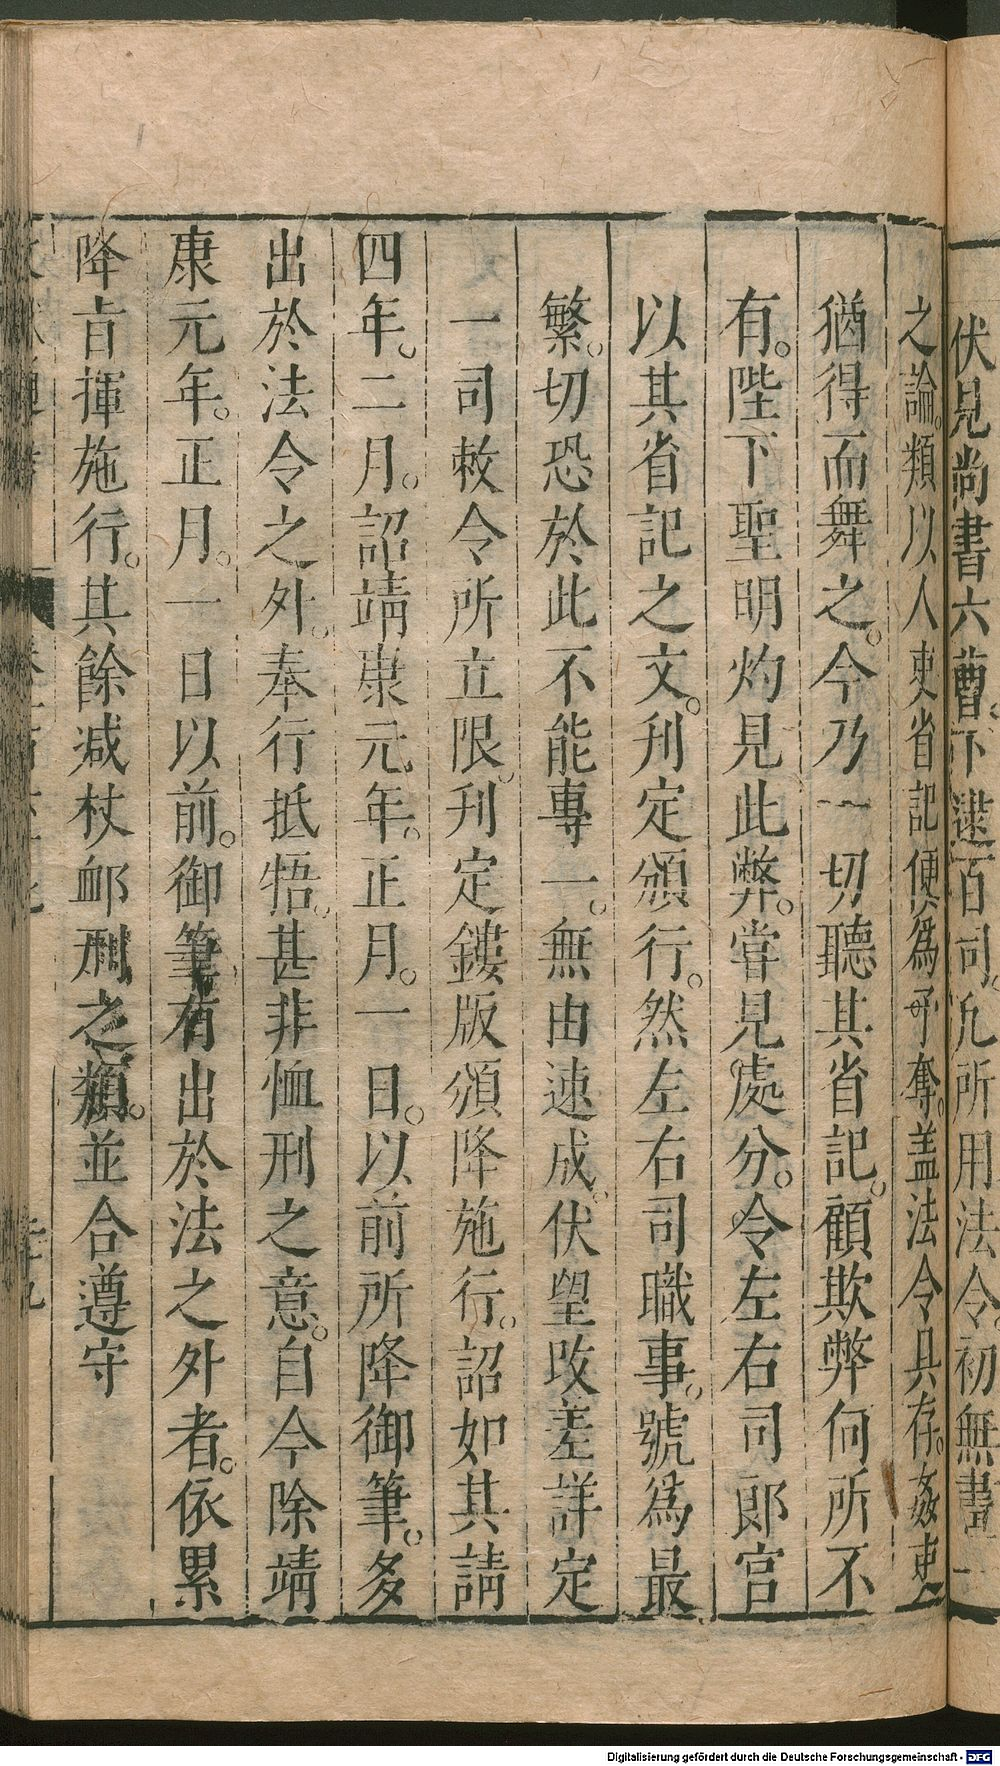 伏見尚書六曹。下逮百司。凡所用法令。初無畫一
之論。類以人吏省記。便爲予奪。盖法令具存。姦吏
猶得而舞之。今乃一切聽其省記。顧欺弊何所不
有。陛下聖明灼見此弊。嘗見處分。令左右司郎官
以其省記之文。刋定頒行。然左右司職事。號爲最
繁。切恐於此不能專一。無由速成。伏望改差詳定
一司敕令所立限。刋定鏤版頒降施行。詔如其請
四年。二月。詔靖康元年。正月。一日。以前所降御筆。多
出於法令之外。奉行抵牾。甚非恤刑之意。自今除靖
康元年。正月。一日以前。御筆有出於法之外者。依累
降旨揮施行。其餘减杖卹刑之類。並合遵守
Digitalisierung gefördert durch die Deutsche Forschungsgemeinschaft - DFG